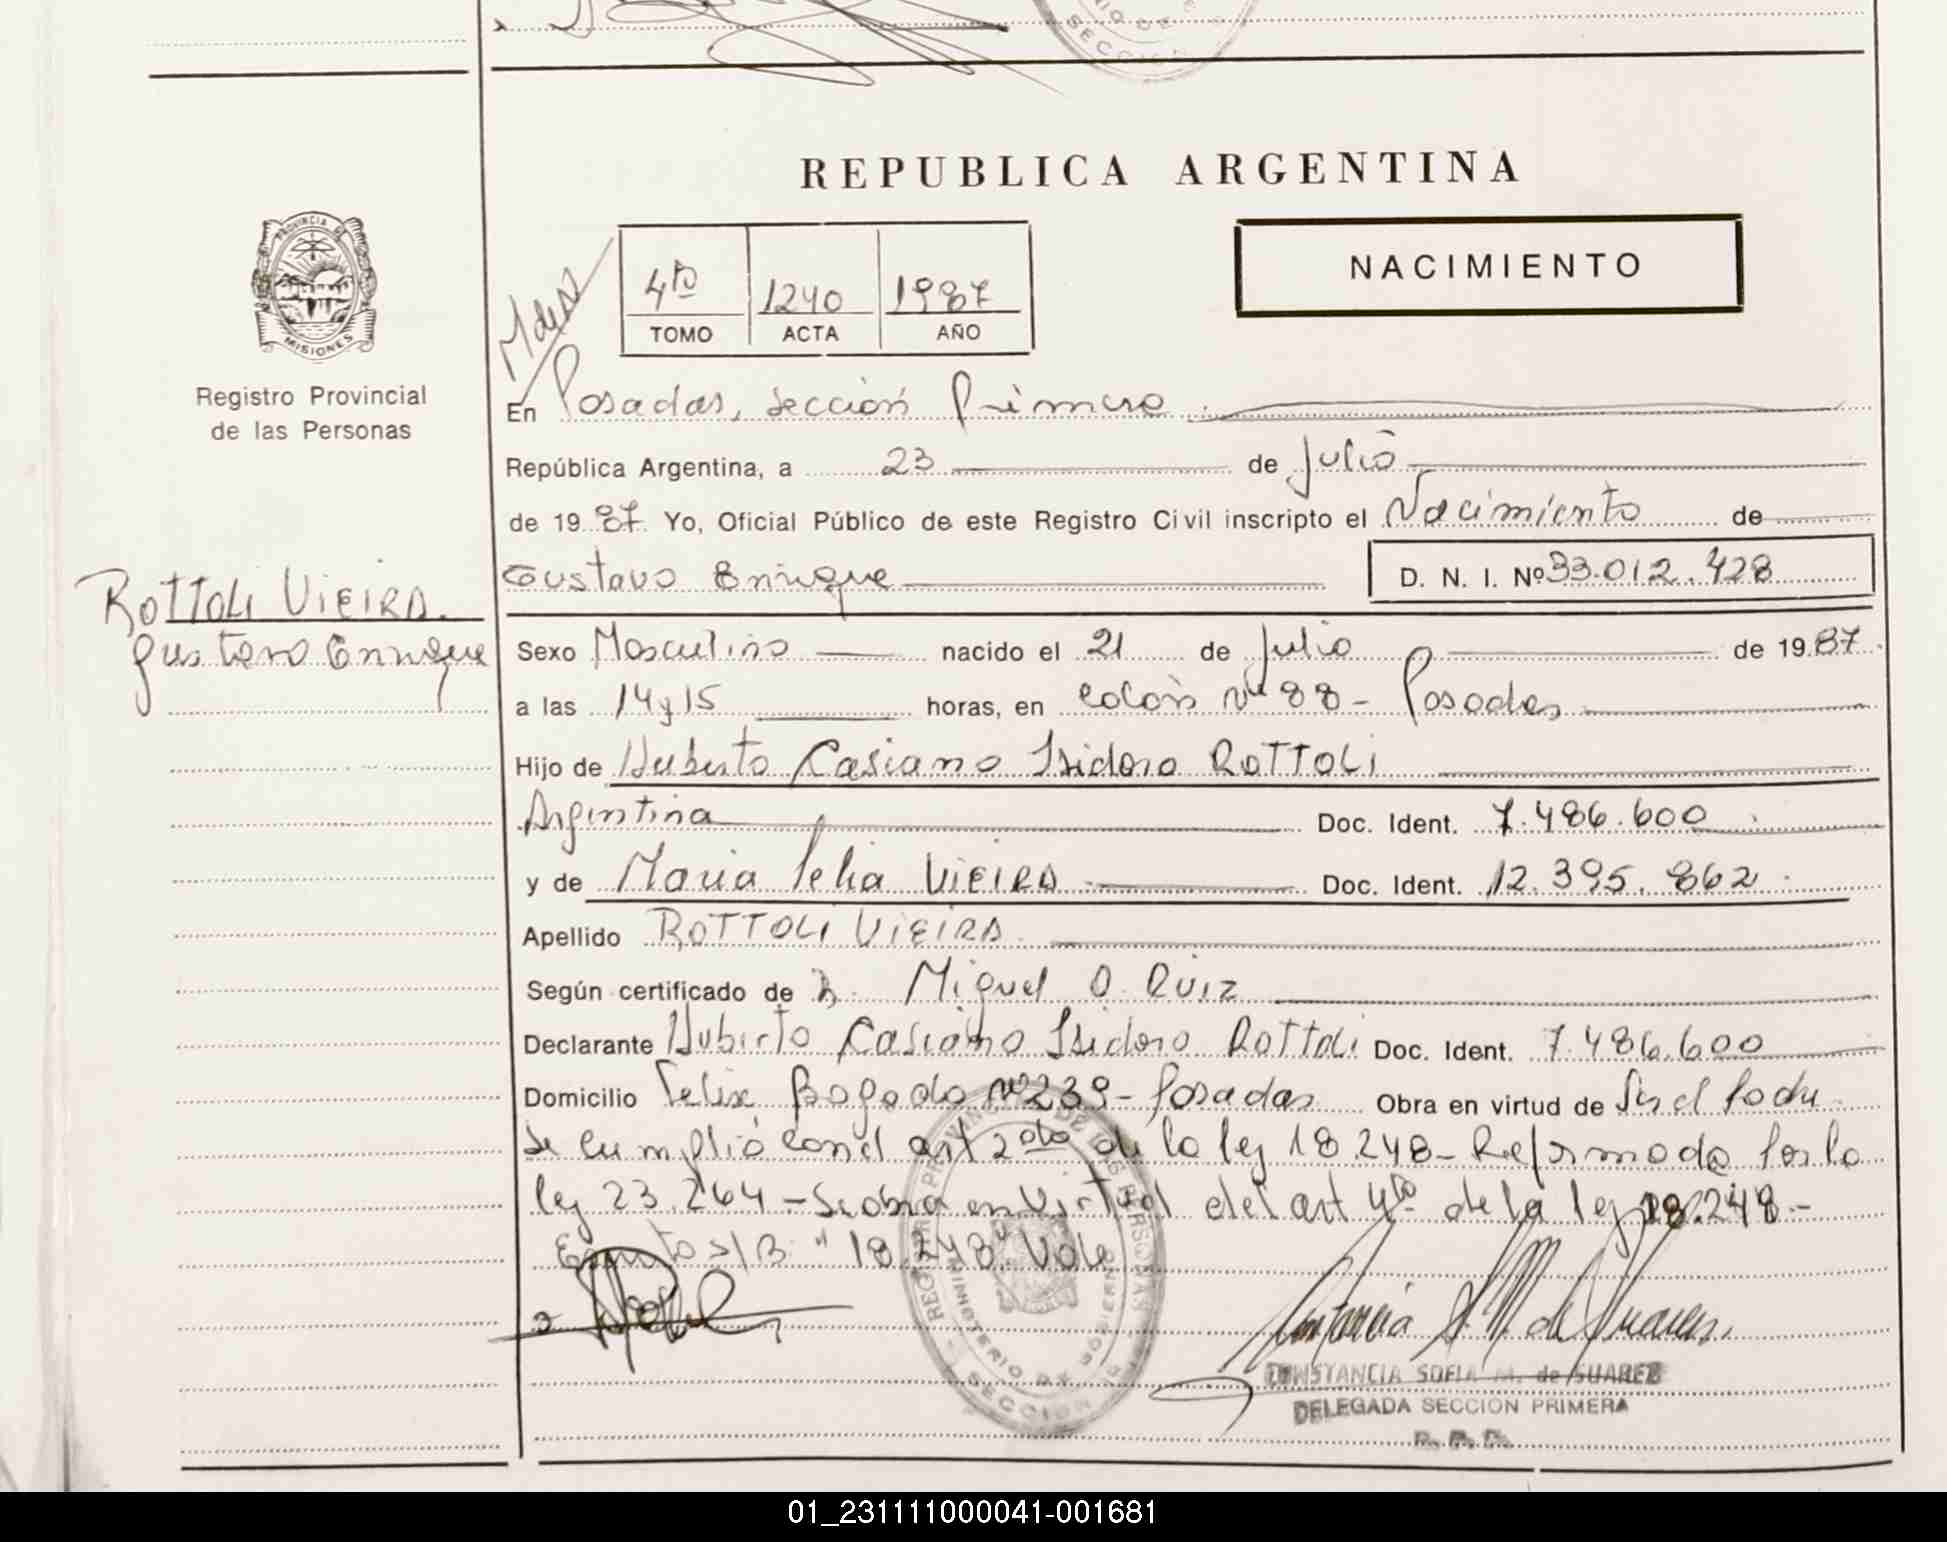 REPUBLICA ARGENTINA
NACIMIENTO
4to 1240 1987
TOMO ACTA AÑO
PROVINCIA DE MISIONES
Registro Provincial
de las Personas
En Posadas, sección Primera
República Argentina, a 23 de Julio
de 1987 Yo, Oficial Público de este Registro Civil inscripto el Nacimiento de
Gustavo Enrique D. N. I. Nº 33.012.428
ROTTOLI VIEIRA.
Gustavo Enrique
Sexo Masculino nacido el 21 de Julio de 1987
a las 14 y 15 horas, en Colón Nº 88 - Posadas
Hijo de Huberto Casiano Isidoro ROTTOLI
Argentina Doc. Ident. 7.486.600
y de Maria Celia VIEIRA Doc. Ident. 12.395.862
Apellido ROTTOLI VIEIRA
Según certificado de Dr. Miguel O. Ruiz
Declarante Huberto Casiano Isidoro Rottoli Doc. Ident. 7.486.600
Domicilio Felix Bogado Nº 239 - Posadas Obra en virtud de Ser el Padre
Se cumplió con el art 2do de la ley 18.248 - Reformada por la
ley 23.264 - Se obra en virtud del art 4to de la ley 18.248 -
S/B "18.248" Vale
REGISTRO PROVINCIAL DE LAS PERSONAS
MINISTERIO DE GOBIERNO
SECCION
CONSTANCIA SOFIA M. de SUAREZ
DELEGADA SECCION PRIMERA
R. P. P.
01_231111000041-001681